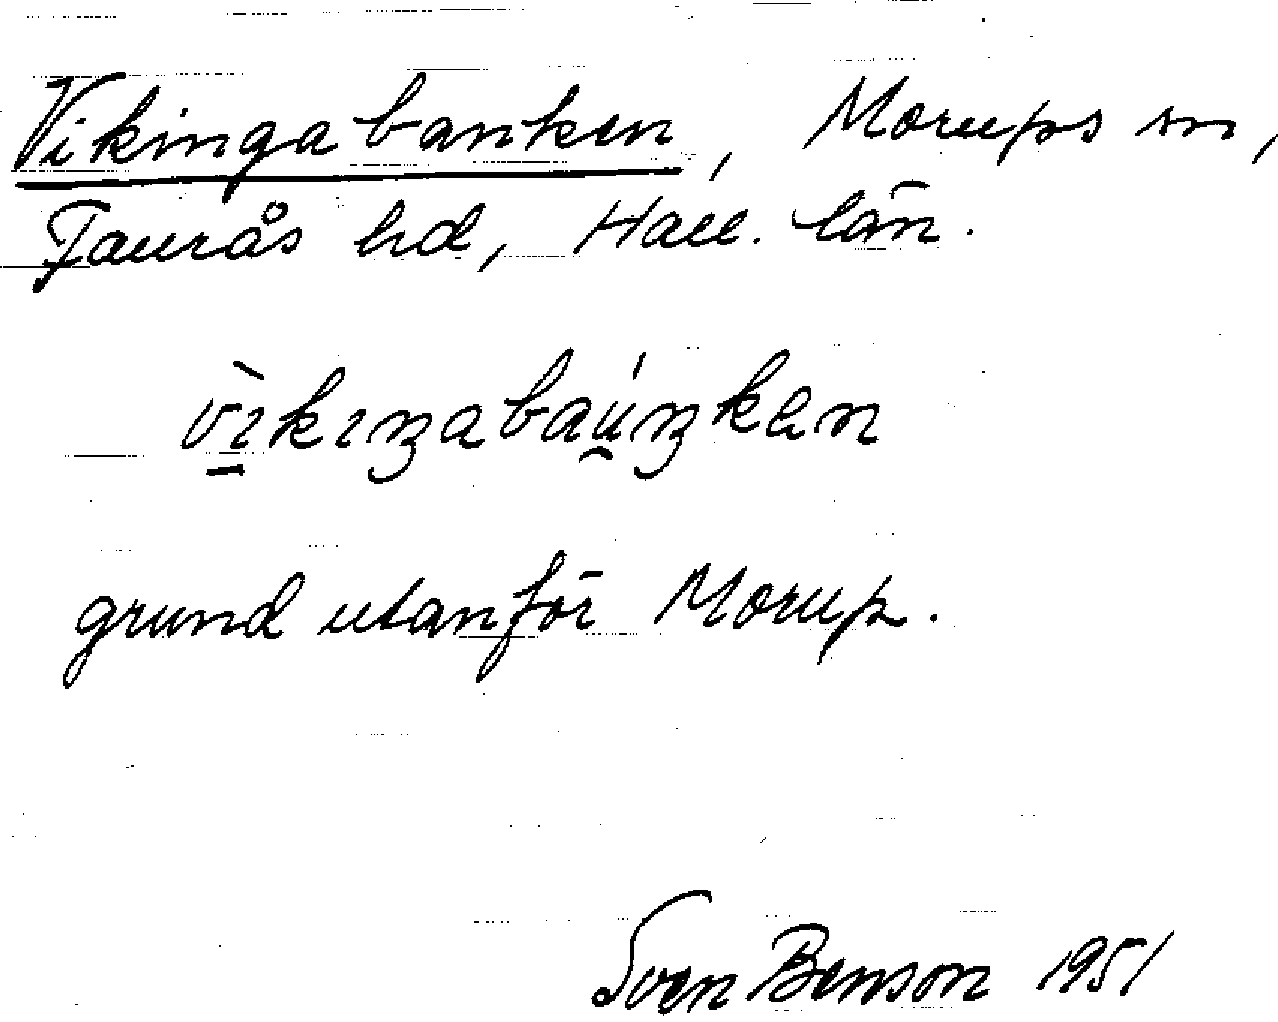 Vikingabanken, Morups sn,
Faurås hd, Hall. län.
grund utanför Morup.
Sven Benson 1951